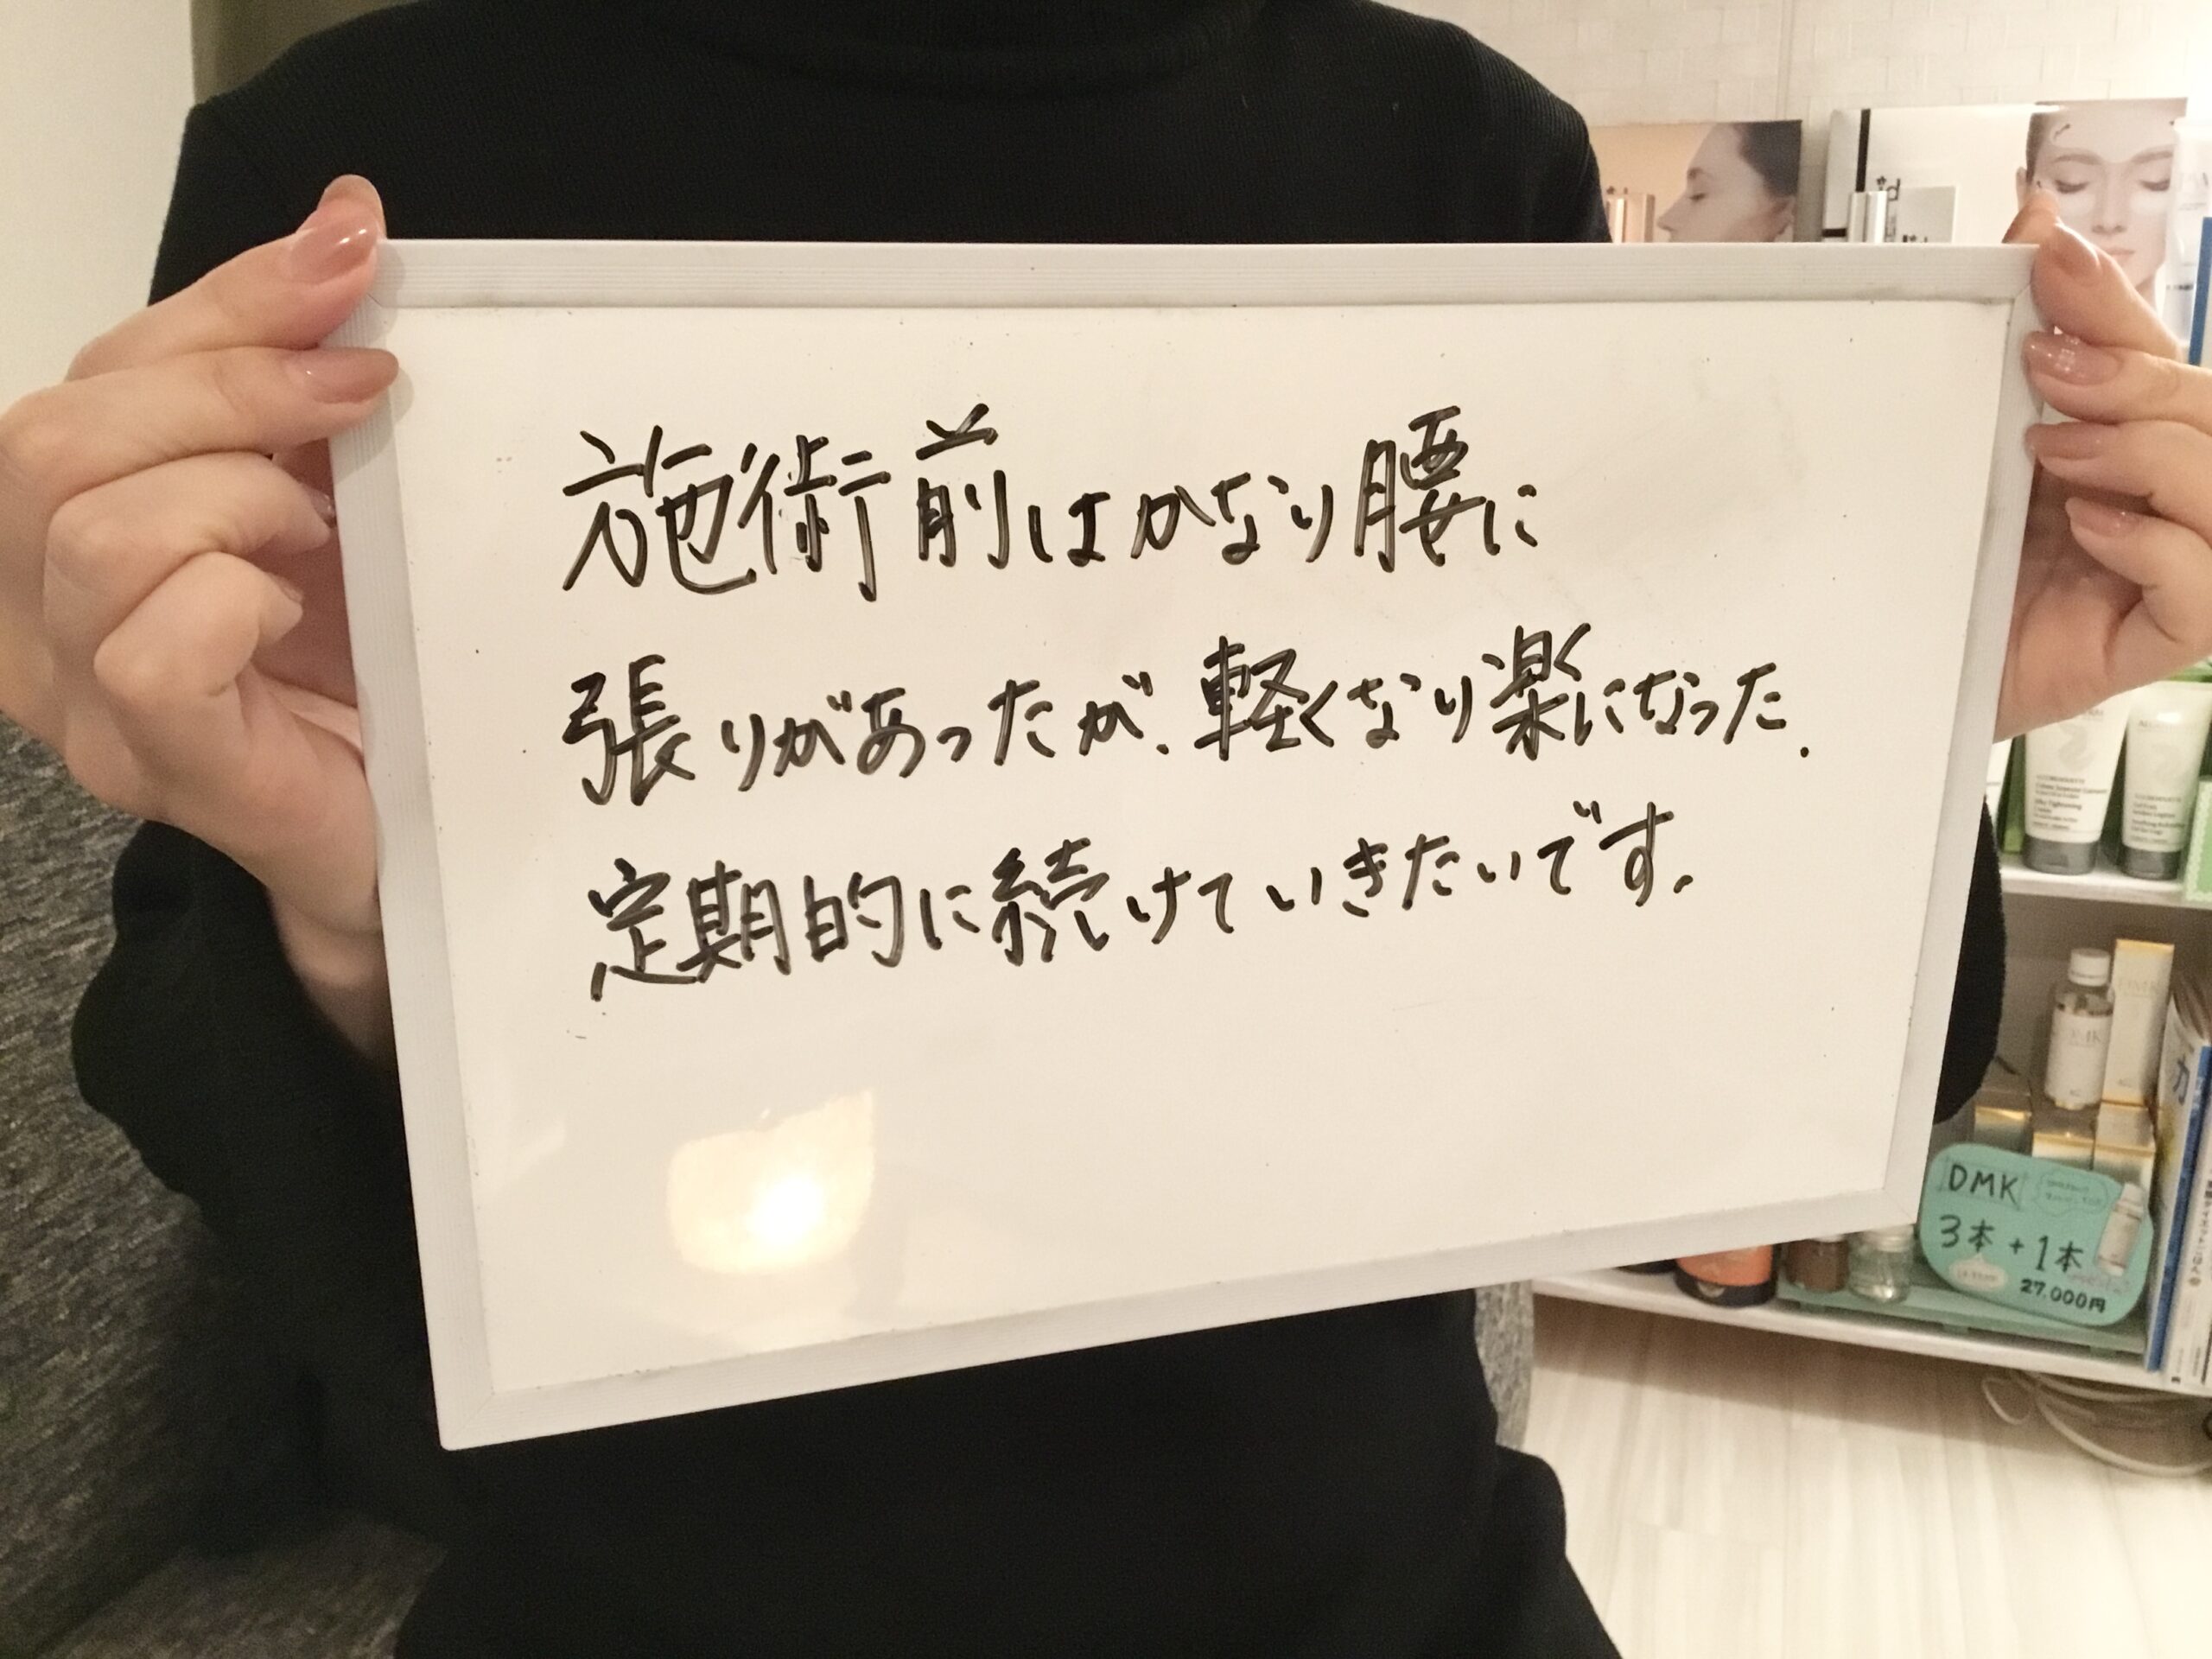 施術前はかなり腰に
張りがあったが、軽くなり楽になった.
定期的に続けていきたいです。
DMK
3本+1本
27.000円